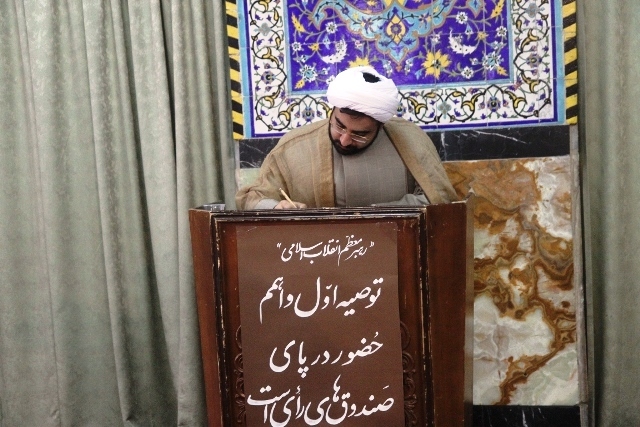 "رهبر معظم انقلاب اسلامی"
توصیه اوّل و اهم
حُضور در پای
صَندوق‌های رأی است